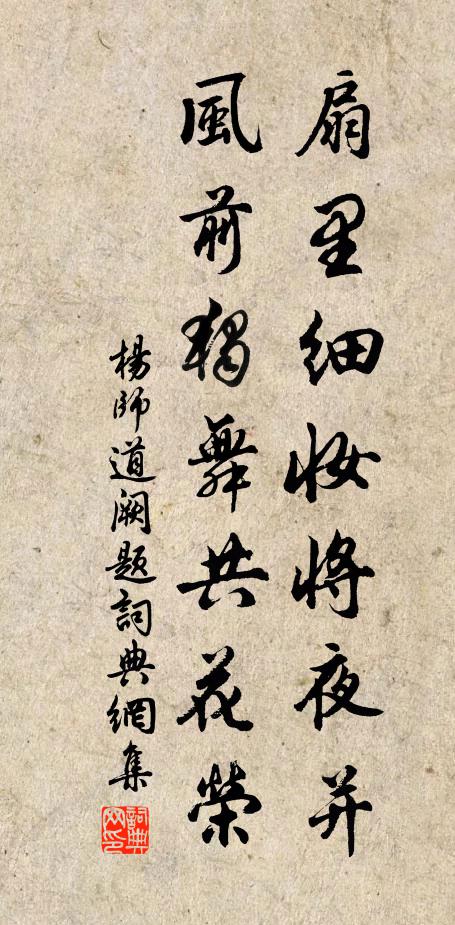 扇里细妝將夜并
風前獨舞共花榮
楊師道闕題詞典網集
詞典網印